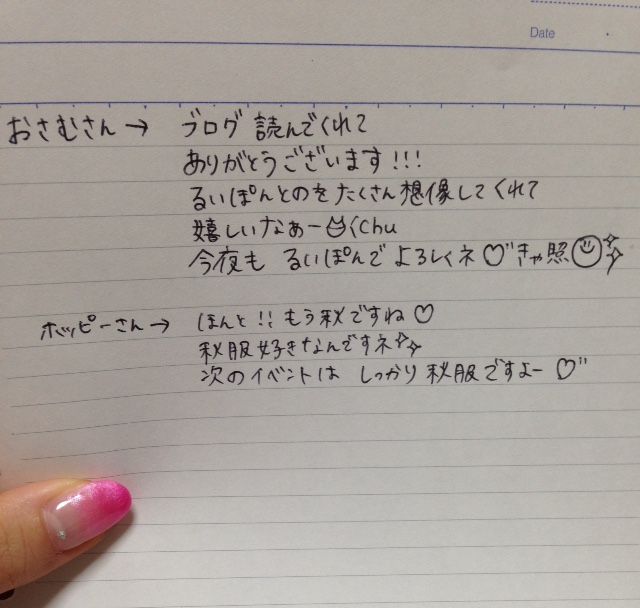 Date
おさむさん→ ブログ 読んでくれて
ありがとうございます!!!
るいぽんとのをたくさん想像してくれて
嬉しいなぁーChu
今夜も るいぽんで よろしくネ♡"きゃ照
ホッピーさん→ ほんと!!もう秋ですね♡
秋服好きなんですネ
次のイベントは しっかり秋服ですよー♡"